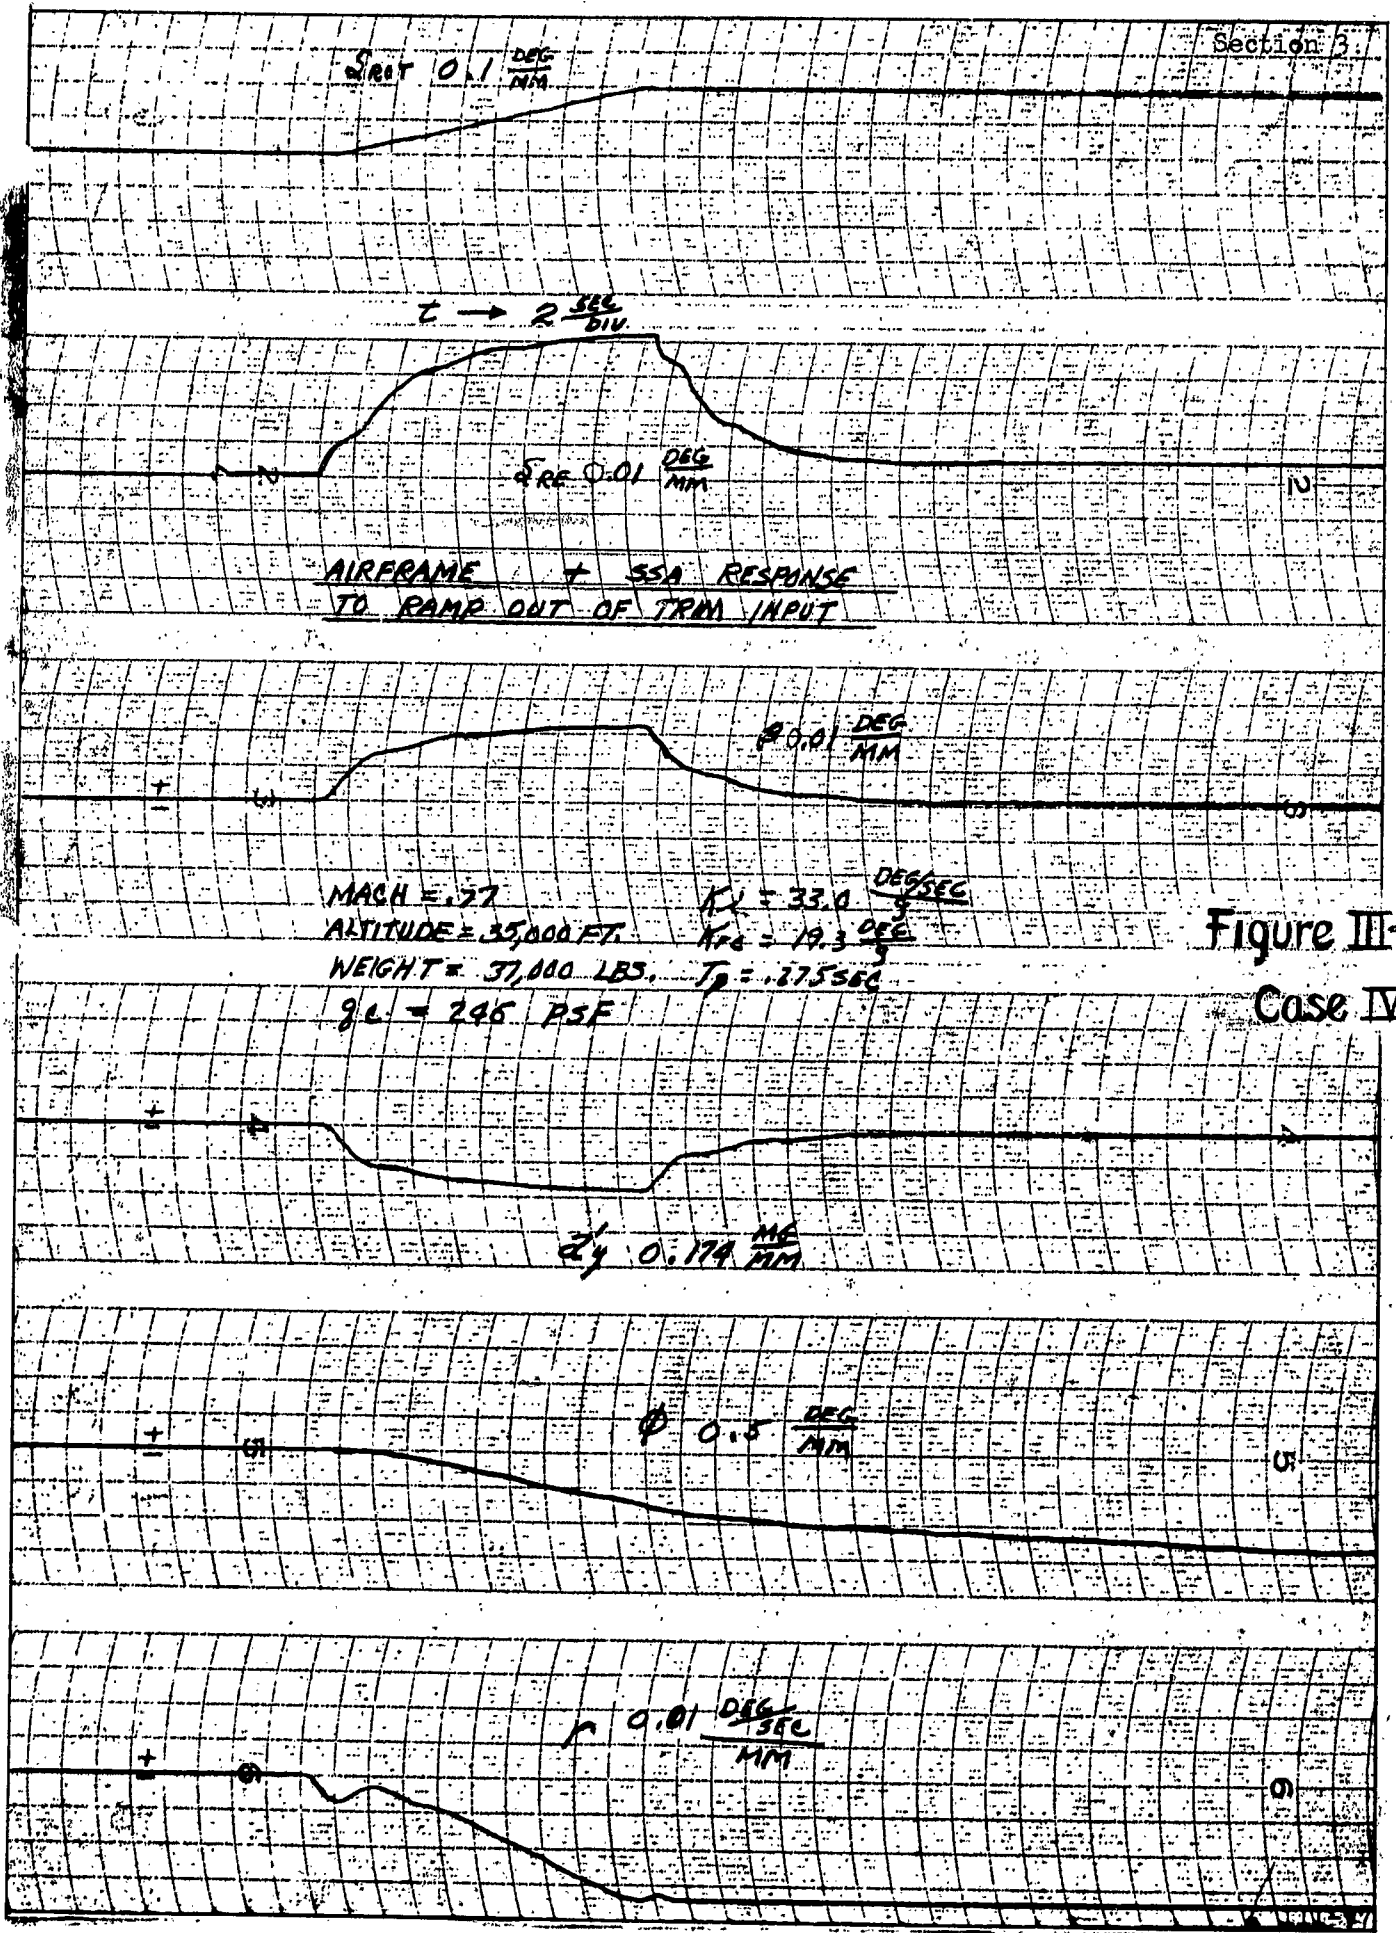 Section 3
δROT 0.1 DEG/MM
t → 2 SEC/DIV.
2
δRE 0.01 DEG/MM
2
AIRFRAME + SSA RESPONSE
TO RAMP OUT OF TRIM INPUT
β 0.01 DEG/MM
+
-
3
MACH = .77
ALTITUDE = 35,000 FT.
WEIGHT = 37,000 LBS.
qc = 246 PSF
= 33.0 DEG/SEC/g
= 19.3 DEG/g
= .275 SEC
Figure III-
Case IV
+
-
4
4
a'y 0.174 MG/MM
φ 0.5 DEG/MM
+
-
5
5
r 0.01 DEG/SEC/MM
+
-
6
6